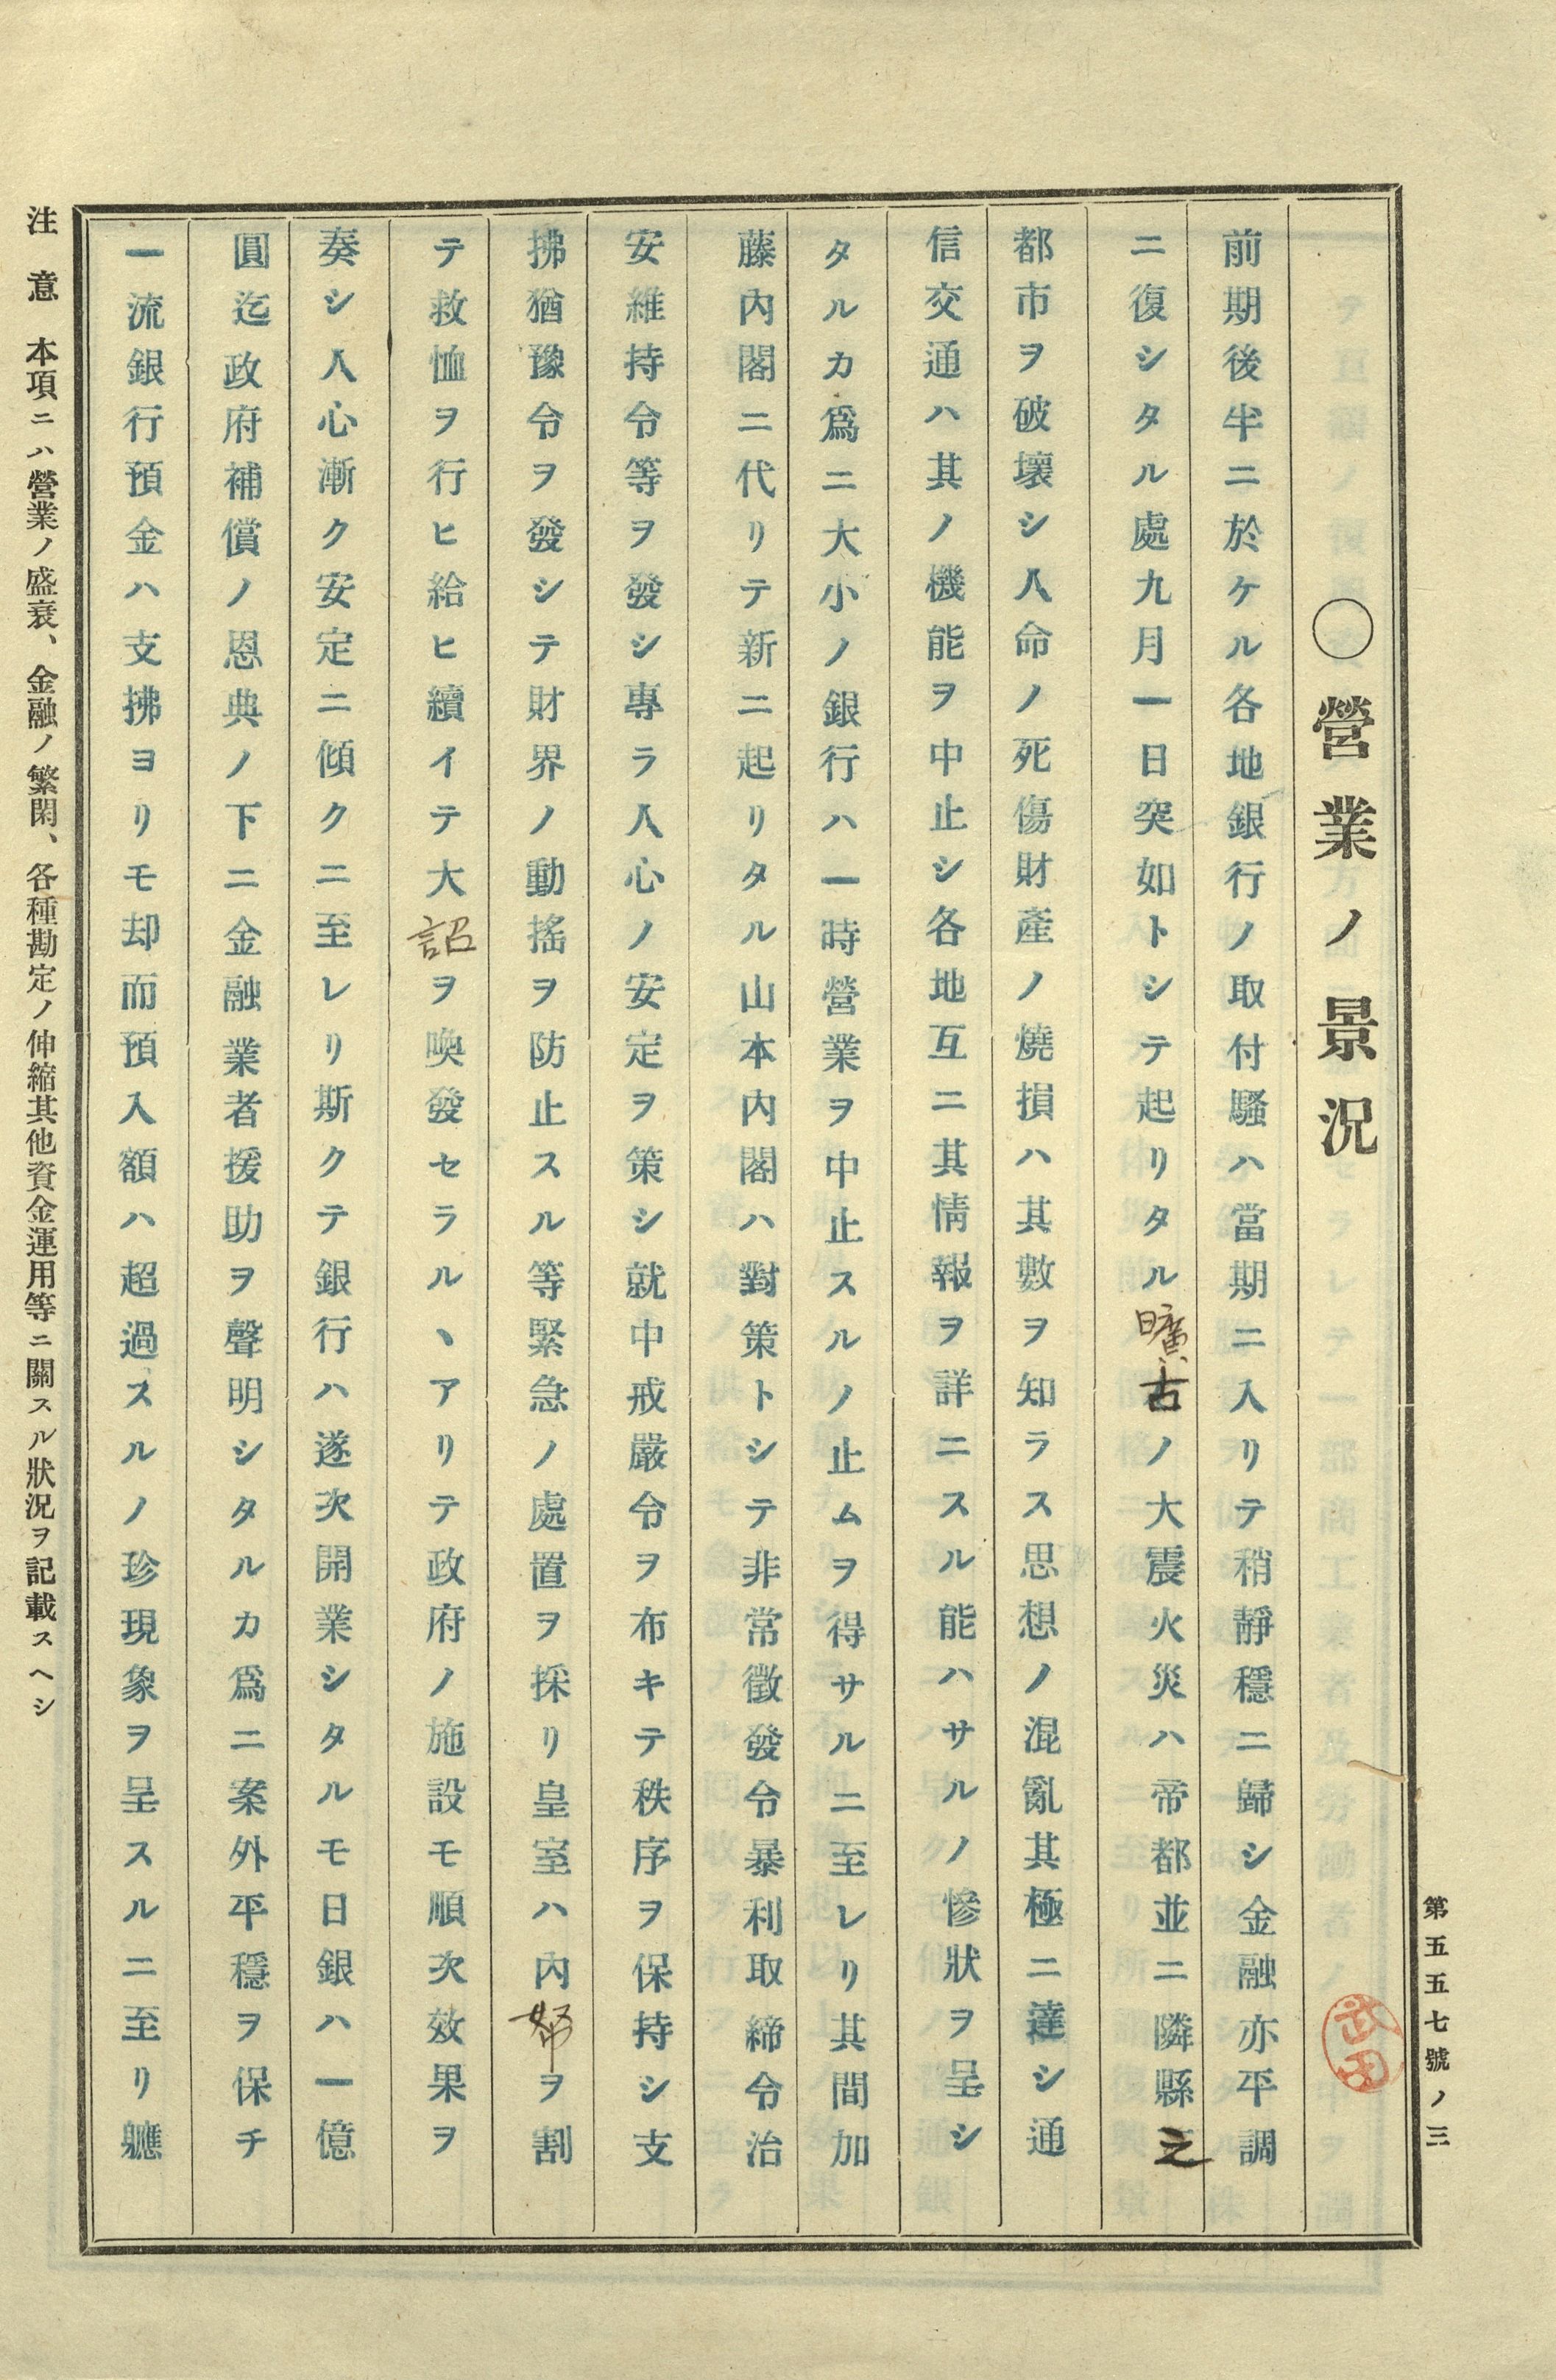 第五五七號ノ三
〇營業ノ景況
武田
前期後半ニ於ケル各地銀行ノ取付騷ハ當期ニ入リテ稍靜穩ニ歸シ金融亦平調
ニ復シタル處九月一日突如トシテ起リタル曠古ノ大震火災ハ帝都並ニ隣縣之
都市ヲ破壞シ人命ノ死傷財產ノ燒損ハ其數ヲ知ラス思想ノ混亂其極ニ達シ通
信交通ハ其ノ機能ヲ中止シ各地互ニ其情報ヲ詳ニスル能ハサルノ慘狀ヲ呈シ
タルカ爲ニ大小ノ銀行ハ一時營業ヲ中止スルノ止ムヲ得サルニ至レリ其間加
藤內閣ニ代リテ新ニ起リタル山本內閣ハ對策トシテ非常徵發令暴利取締令治
安維持令等ヲ發シ專ラ人心ノ安定ヲ策シ就中戒嚴令ヲ布キテ秩序ヲ保持シ支
拂猶豫令ヲ發シテ財界ノ動搖ヲ防止スル等緊急ノ處置ヲ採リ皇室ハ內帑ヲ割
テ救恤ヲ行ヒ給ヒ續イテ大詔ヲ喚發セラルヽアリテ政府ノ施設モ順次效果ヲ
奏シ人心漸ク安定ニ傾クニ至レリ斯クテ銀行ハ遂次開業シタルモ日銀ハ一億
圓迄政府補償ノ恩典ノ下ニ金融業者援助ヲ聲明シタルカ爲ニ案外平穩ヲ保チ
一流銀行預金ハ支拂ヨリモ却而預入額ハ超過スルノ珍現象ヲ呈スルニ至リ軈
注意 本項ニハ營業ノ盛衰、金融ノ繁閑、各種勘定ノ伸縮其他資金運用等ニ關スル狀況ヲ記載スヘシ